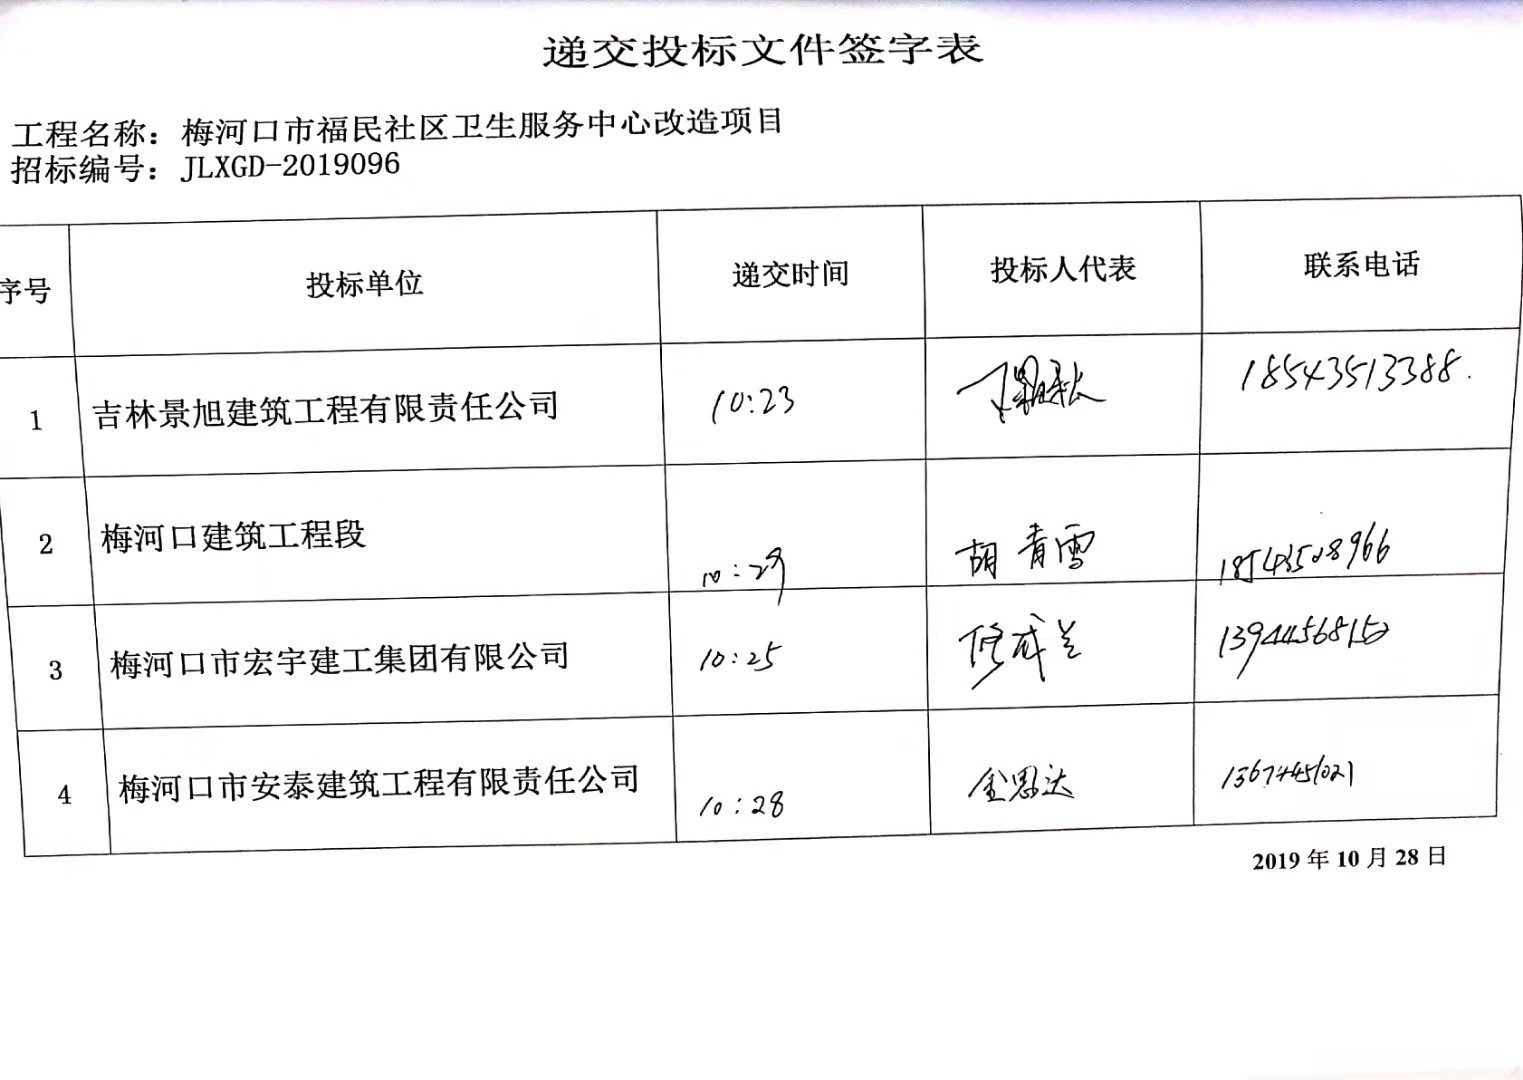 递交投标文件签字表
工程名称：梅河口市福民社区卫生服务中心改造项目
招标编号：JLXGD-2019096
序号 投标单位 递交时间 投标人代表 联系电话
1 吉林景旭建筑工程有限责任公司 10:23 18543513388.
2 梅河口建筑工程段 10:29 胡青雪 18543508966
3 梅河口市宏宇建工集团有限公司 10:25 修成兰
4 梅河口市安泰建筑工程有限责任公司 10:28 金恩达
2019 年 10 月 28 日